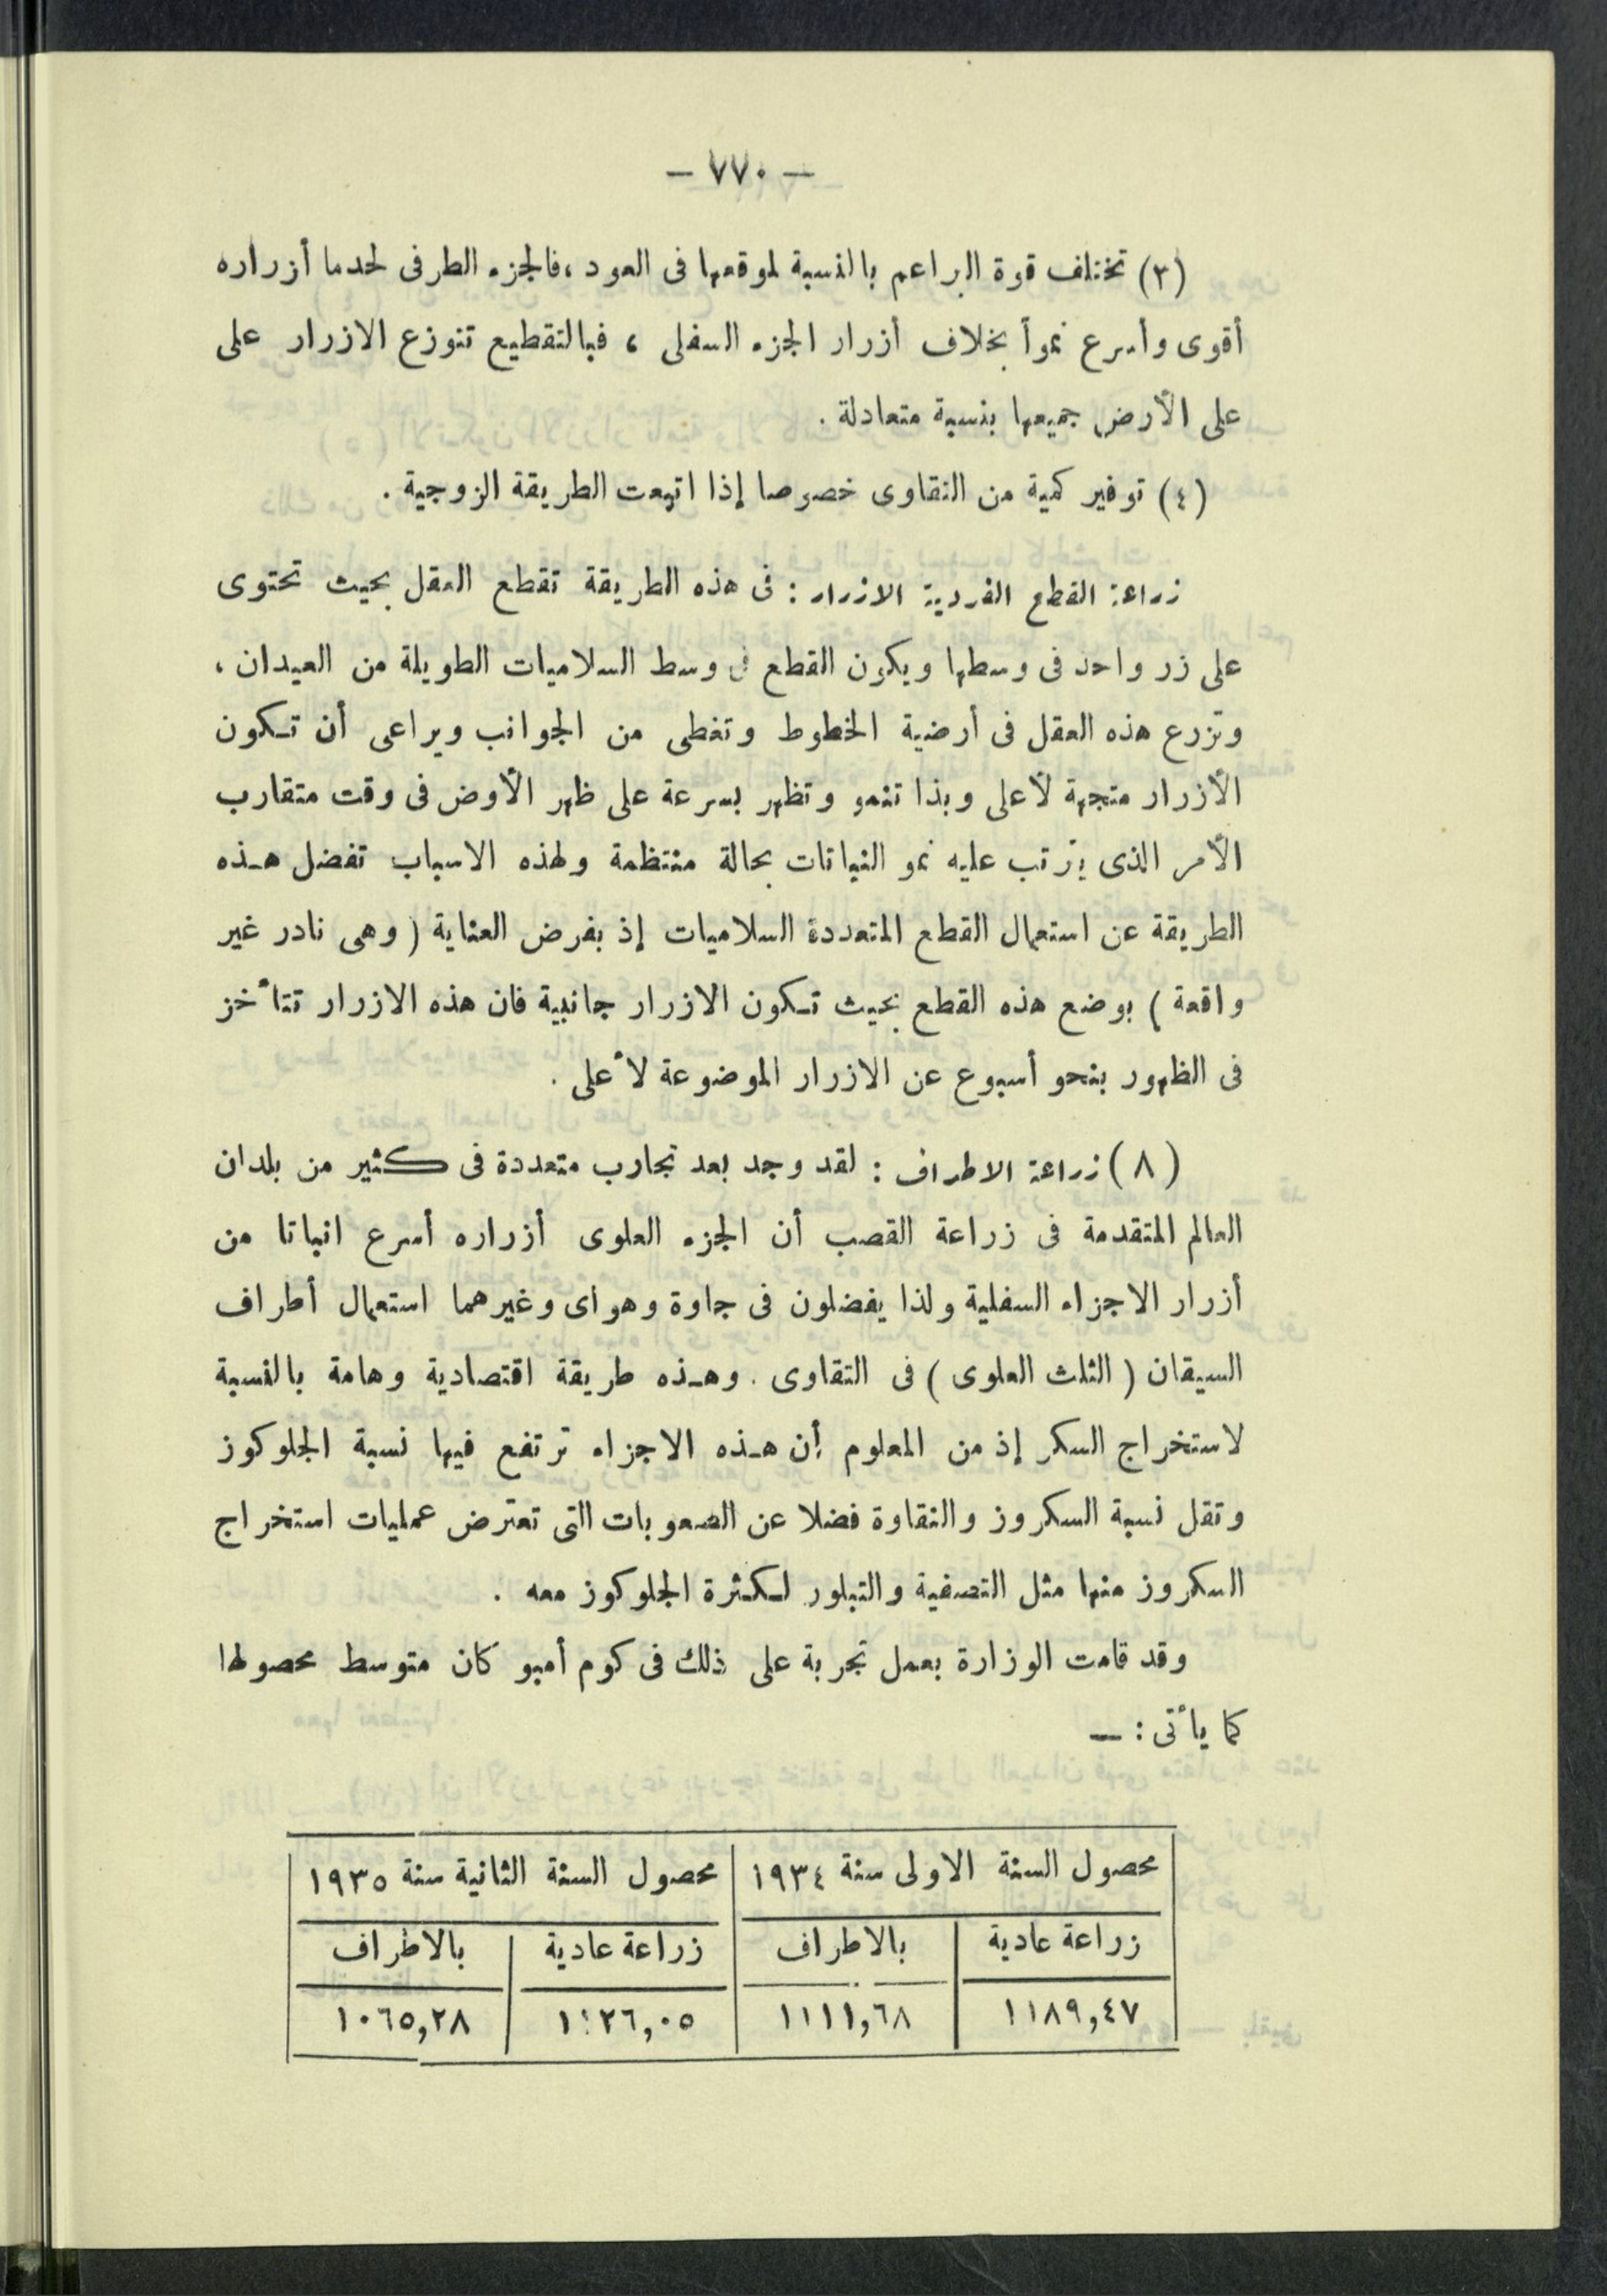 — ٧٧٠ —
(٣) تختلف قوة البراعم بالنسبة لموقعها فى العود ، فالجزء الطرفى لحدما أزراره
أقوى وأسرع نمواً بخلاف أزرار الجزء السفلى ، فبالتقطيع تتوزع الازرار على
على الأرض جميعها بنسبة متعادلة .
(٤) توفير كمية من التقاوى خصوصا إذا اتبعت الطريقة الزوجية .
زراعة القطع الفردية الازرار : فى هذه الطريقة تقطع العقل بحيث تحتوى
على زر واحد فى وسطها ويكون القطع فى وسط السلاميات الطويلة من العيدان ،
وتزرع هذه العقل فى أرضية الخطوط وتغطى من الجوانب ويراعى أن تكون
الأزرار متجهة لأعلى وبذا تنمو وتظهر بسرعة على ظهر الأوض فى وقت متقارب
الأمر الذى يترتب عليه نمو النباتات بحالة منتظمة ولهذه الاسباب تفضل هذه
الطريقة عن استعمال القطع المتعددة السلاميات إذ بفرض العناية ( وهى نادر غير
واقعة ) بوضع هذه القطع بحيث تكون الازرار جانبية فان هذه الازرار تتأخز
فى الظهور بنحو أسبوع عن الازرار الموضوعة لأعلى .
( ٨ ) زراعة الاطراف : لقد وجد بعد تجارب متعددة فى كثير من بلدان
العالم المتقدمة فى زراعة القصب أن الجزء العلوى أزراره أسرع انباتا من
أزرار الاجزاء السفلية ولذا يفضلون فى جاوة وهواى وغيرهما استعمال أطراف
السيقان ( الثلث العلوى ) فى التقاوى . وهذه طريقة اقتصادية وهامة بالنسبة
لاستخراج السكر إذ من المعلوم أن هذه الاجزاء ترتفع فيها نسبة الجلوكوز
وتقل نسبة السكروز والنقاوة فضلا عن الصعوبات التى تعترض عمليات استخراج
السكروز منها مثل التصفية والتبلور لكثرة الجلوكوز معه .
وقد قامت الوزارة بعمل تجربة على ذلك فى كوم أمبو كان متوسط محصولها
كما يأتى : —
محصول السنة الاولى سنة ١٩٣٤ محصول السنة الثانية سنة ١٩٣٥
زراعة عادية بالاطراف زراعة عادية بالاطراف
١١٨٩,٤٧ ١١١١,٦٨ ١٠٦٥,٢٨